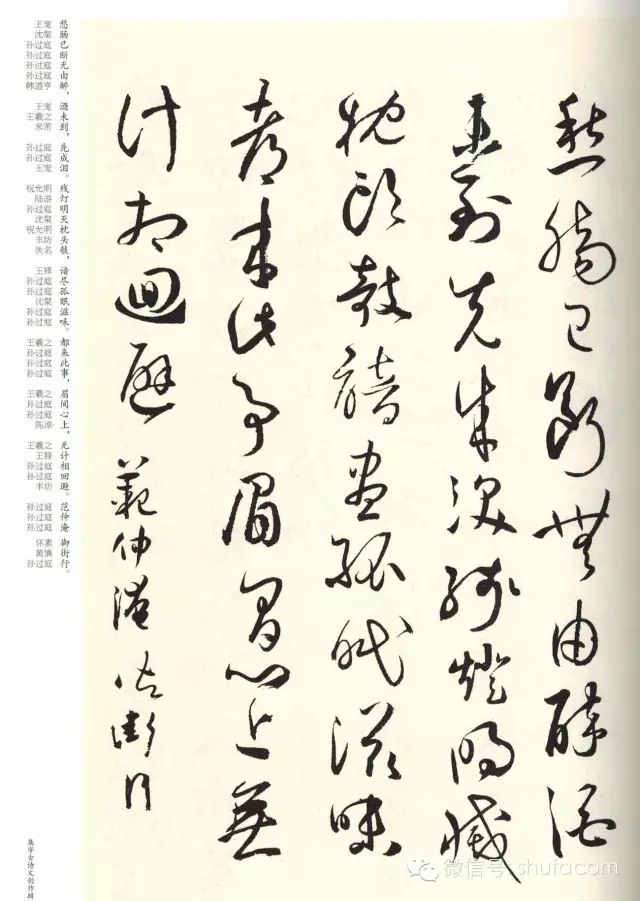 愁腸已斷無由醉酒
未到先成淚殘燈明滅
枕頭攲諳盡孤眠滋味
都來此事眉間心上無
計相迴避 范仲淹 御街行
王宠 愁
沈粲 肠
孙过庭 已
孙过庭 断
孙过庭 无
孙过庭 由
韩道亨 醉，
王宠 酒
王羲之 未
米芾 到，
孙过庭 先
孙过庭 成
王宠 泪。
祝允明 残
陆游 灯
孙过庭 明
沈粲 灭
祝允明 枕
丰坊 头
佚名 攲，
王铎 谙
孙过庭 尽
孙过庭 孤
沈粲 眠
孙过庭 滋
孙过庭 味。
王羲之 都
孙过庭 来
孙过庭 此
孙过庭 事，
王羲之 眉
孙过庭 间
孙过庭 心
陈淳 上，
王羲之 无
王铎 计
孙过庭 相
孙过庭 回
丰坊 避。
孙过庭 范
孙过庭 仲
孙过庭 淹
怀素 御
黄慎 街
孙过庭 行。
集字古诗文创作辑
微信号: shufacom